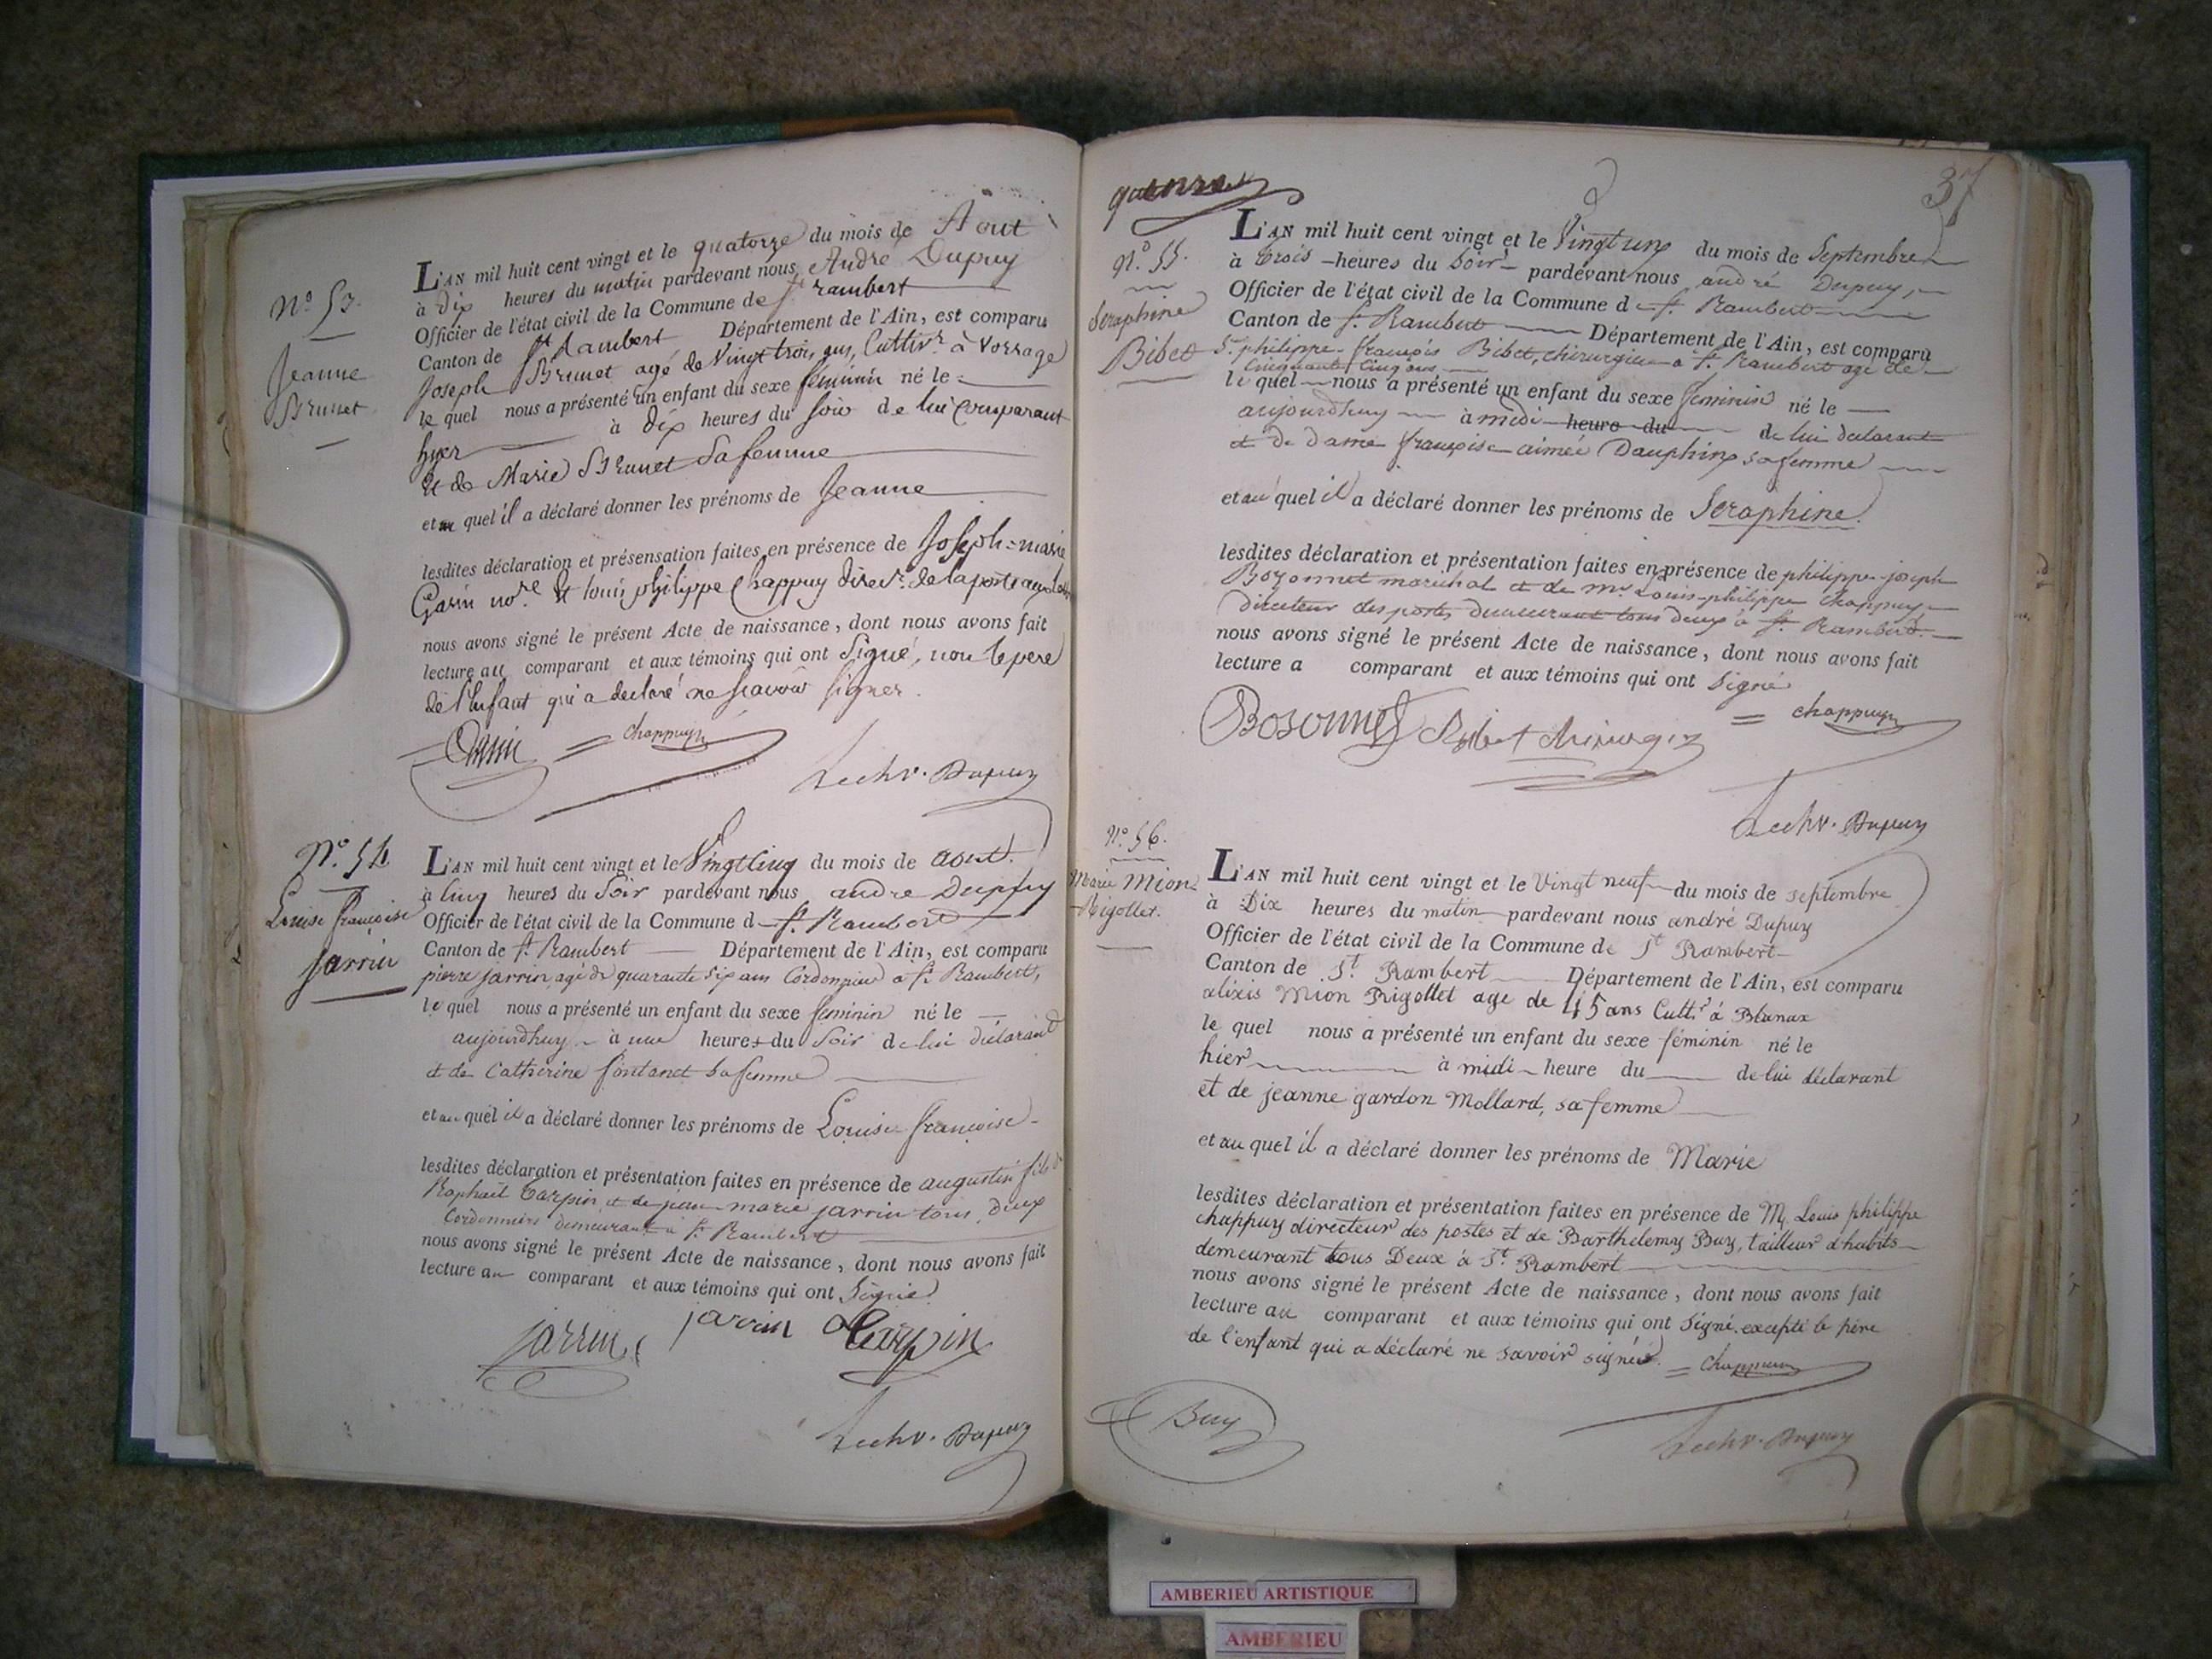 N.° 53.
Jeanne
Brunet
L'AN mil huit cent vingt et le quatorze du mois de Aout
à dix heures du matin pardevant nous André Dupuy
Officier de l'état civil de la Commune de St rambert
Canton de St Rambert Département de l'Ain, est comparu
Joseph Brunet agé de Vingt trois ans, Cultivr. à Vorsage
le quel nous a présenté un enfant du sexe féminin né le
hyer à dix heures du soir de lui Comparant
et de Marie Brunet sa femme
et au quel il a déclaré donner les prénoms de Jeanne
lesdites déclaration et présensation faites en présence de Joseph-marie
Garin nore. et louis philippe Chappuy direcr. de la poste aux
nous avons signé le présent Acte de naissance, dont nous avons fait
lecture au comparant et aux témoins qui ont Signé, non le pere
de l'enfant qui a declaré ne scavoir signer.
Garin = chappuy
Dupuy
N.° 54
Louise françoise
Jarrin
L'AN mil huit cent vingt et le Vingt Cinq du mois de aout.
à Cinq heures du Soir pardevant nous andré Dupuy
Officier de l'état civil de la Commune d St. Rambert
Canton de St. Rambert Département de l'Ain, est comparu
pierre jarrin agé de quarante six ans Cordonnier à St. Rambert,
le quel nous a présenté un enfant du sexe feminin né le
aujourdhuy à une heures du Soir de lui déclarant
et de Catherine fontanet sa femme
et au quel il a déclaré donner les prénoms de Louise françoise
lesdites déclaration et présentation faites en présence de augustin fils de
Raphaël Carpin, et de jean marie jarrin tous deux
Cordonniers demeurant à St. Rambert
nous avons signé le présent Acte de naissance, dont nous avons fait
lecture au comparant et aux témoins qui ont Signé
jarrin jarrin Carpin
Dupuy
quinze
37
n.° 55.
Seraphine
Bibet
L'AN mil huit cent vingt et le Vingt un du mois de Septembre
à trois heures du Soir pardevant nous andré Dupuy,
Officier de l'état civil de la Commune d St. Rambert
Canton de St. Rambert Département de l'Ain, est comparu
Sr. philippe-françois Bibet, chirurgien à St. Rambert agé de
Cinquante Cinq ans
le quel nous a présenté un enfant du sexe feminin né le
aujourdhuy à midi heure du de lui declarant
et de dame françoise aimée Dauphin sa femme
et au quel il a déclaré donner les prénoms de Seraphine.
lesdites déclaration et présentation faites en présence de philippe-joseph
Bozonnet marechal et de mr. Louis-philippe Chappuy,
directeur des postes demeurant tous deux à St. Rambert.
nous avons signé le présent Acte de naissance, dont nous avons fait
lecture a comparant et aux témoins qui ont Signé
Bosonnet Bibet chirurgien = chappuy
Dupuy
N.° 56.
Marie Mion
Rigollet.
L'AN mil huit cent vingt et le Vingt neuf du mois de septembre
à Dix heures du matin pardevant nous andré Dupuy
Officier de l'état civil de la Commune de St Rambert
Canton de St. Rambert Département de l'Ain, est comparu
alixis Mion Rigollet age de 45 ans Cultr. à Blanax
le quel nous a présenté un enfant du sexe féminin né le
hier à midi heure du de lui déclarant
et de jeanne gardon Mollard, sa femme
et au quel il a déclaré donner les prénoms de Marie
lesdites déclaration et présentation faites en présence de Mr. Louis philippe
chappuy directeur des postes et de Barthelemy Buy, tailleur d'habits
demeurant tous Deux à St. Rambert
nous avons signé le présent Acte de naissance, dont nous avons fait
lecture au comparant et aux témoins qui ont Signé. excepté le père
de l'enfant qui a déclaré ne savoir signér. = chappuy
Buy
Dupuy
AMBERIEU ARTISTIQUE
AMBERIEU